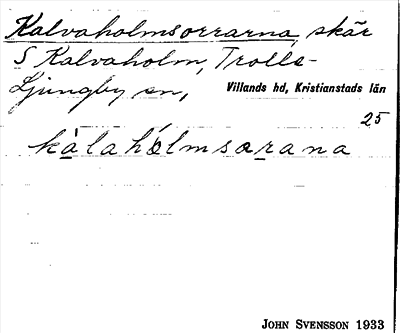 Kalvaholmsorrarna, skär
S Kalvaholm, Trolle-
Ljungby sn, Villands hd, Kristianstads län
25
kalahólmsorana
JOHN SVENSSON 1933